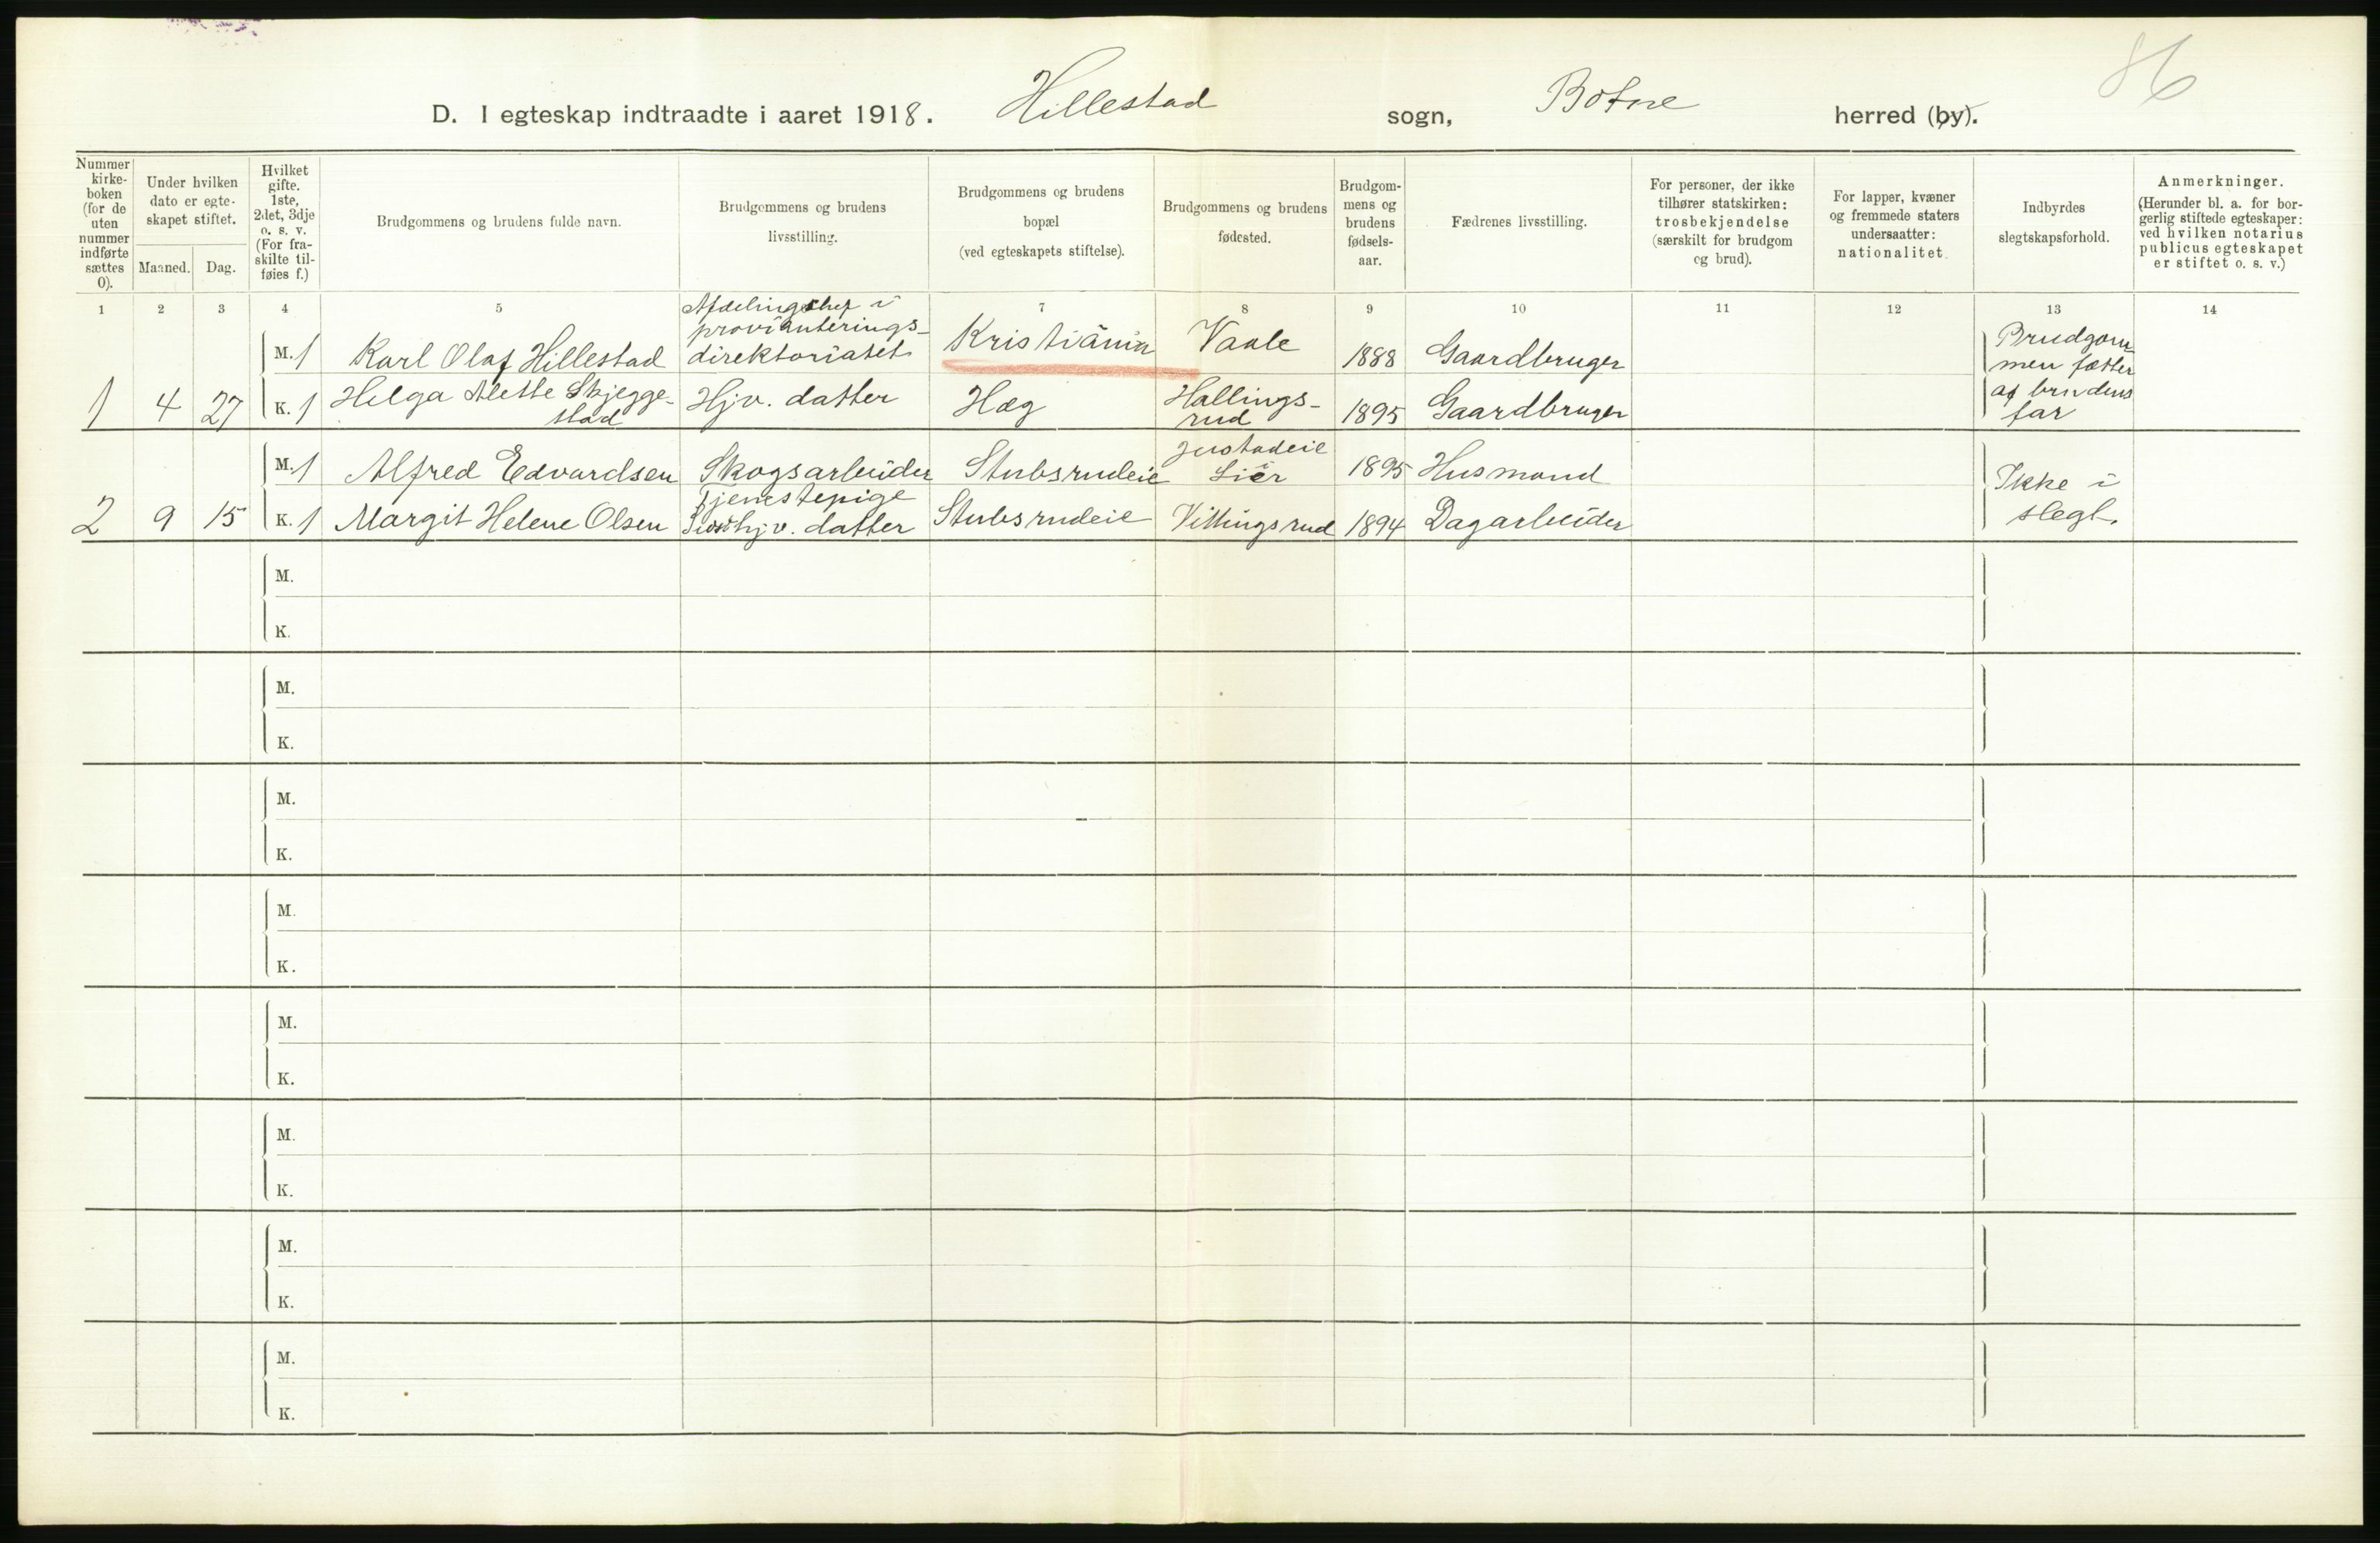 86
D. I egteskap indtraadte i aaret 1918. Hillestad sogn, Botne herred (by).
Nummer kirke-boken (for de uten nummer indførte sættes 0).
Under hvilken dato er egte-skapet stiftet.
Maaned.
Dag.
Hvilket gifte. 1ste, 2det, 3dje o. s. v. (For fra-skilte til-føies f.)
Brudgommens og brudens fulde navn.
Brudgommens og brudens livsstilling.
Brudgommens og brudens bopæl (ved egteskapets stiftelse).
Brudgommens og brudens fødested.
Brudgom-mens og brudens fødsels-aar.
Fædrenes livsstilling.
For personer, der ikke tilhører statskirken: trosbekjendelse (særskilt for brudgom og brud).
For lapper, kvæner og fremmede staters undersaatter: nationalitet.
Indbyrdes slegtskapsforhold.
Anmerkninger. (Herunder bl. a. for bor-gerlig stiftede egteskaper: ved hvilken notarius publicus egteskapet er stiftet o. s. v.)
1 2 3 4 5 7 8 9 10 11 12 13 14
M. 1 Karl Olaf Hillestad Afdelingschef i provianterings-direktoriatet Kristiania Vaale 1888 Gaardbruger
1 4 27 K. 1 Helga Alette Skjegge-stad Hjv. datter Hæg Hallings-rud 1895 Gaardbruger
Brudgom-men fætter af brudens far
M. 1 Alfred Edvardsen Skogsarbeider Stubsrudeie Lier 1895 Husmand
2 9 15 K. 1 Margit Helene Olsen Tjenestepige hjv. datter Stubsrudeie Vittingsrud 1894 Dagarbeider
Ikke i slegt.
M.
K.
M.
K.
M.
K.
M.
K.
M.
K.
M.
K.
M.
K.
M.
K.